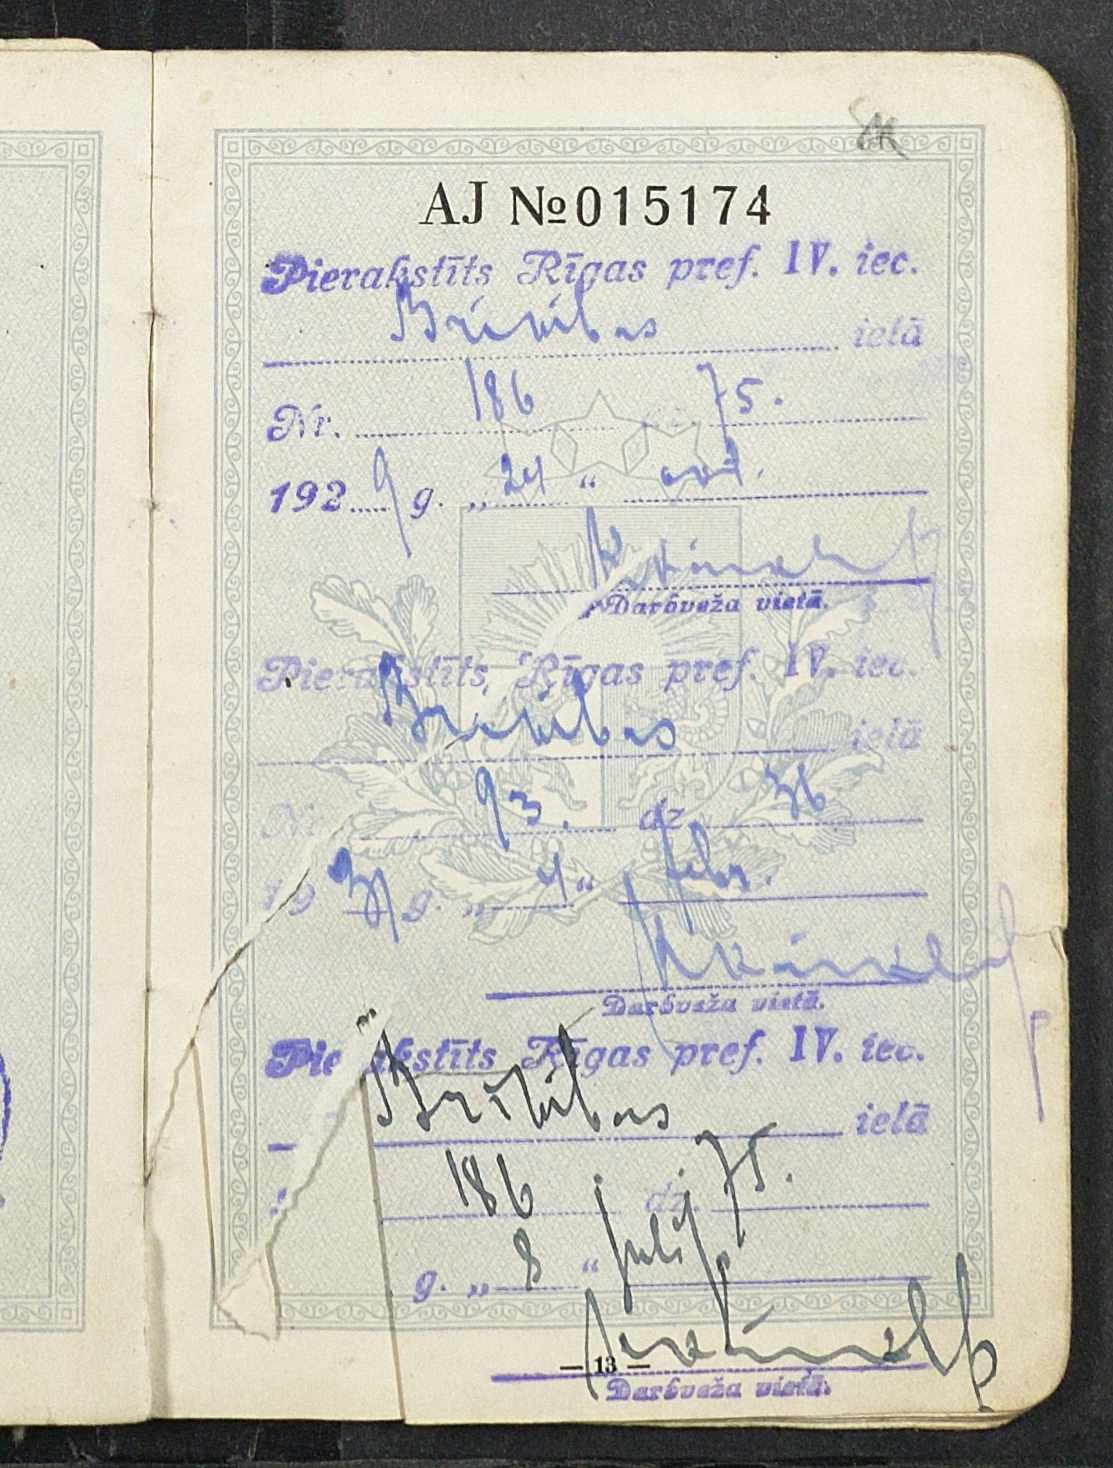 AJ №015174
Pierakstīts Rīgas pref. IV. iec.
Brīvības ielā
Nr. 186 dz. 75.
1929 g. „24“ okt.
Darbveža vietā.
Pierakstīts Rīgas pref. IV. iec.
Brīvības ielā
Nr. 93. dz. 36
1931 g. „4“ febr.
Darbveža vietā.
Pie akstīts Rīgas pref. IV. iec.
Brīvības ielā
186 dz. 75.
g. „8“ julijā
— 13 —
Darbveža vietā.